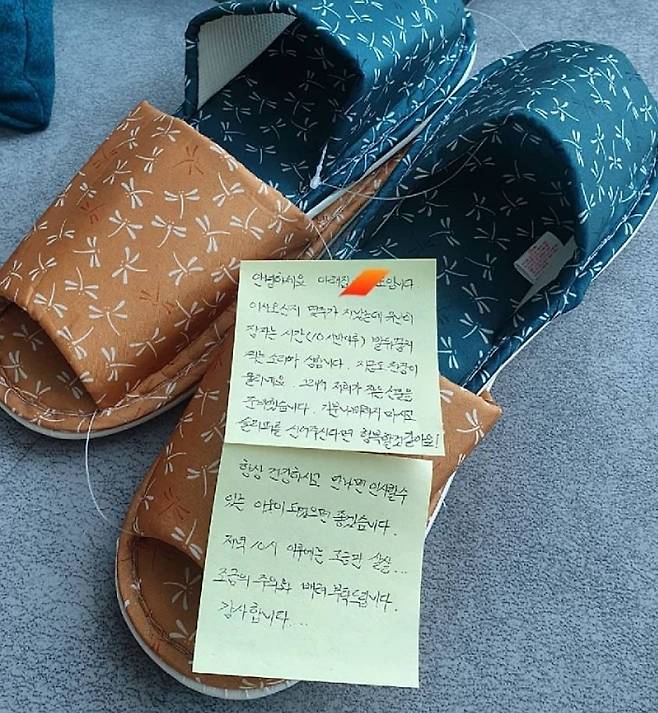 안녕하세요 아래집 호입니다
이사오신지 몇주가 지났는데 유난히
잠자는 시간(10시반이후) 발뒤꿈치
찍는 소리가 심합니다. 지금도 천장이
울리네요. 그래서 저희가 작은 선물을
준비했습니다. 기분나빠하지 마시고
슬리퍼를 신어주신다면 행복할것같아요!
항상 건강하시고 만나면 인사할수
있는 이웃이 되었으면 좋겠습니다.
저녁 10시 이후에는 조금만 살살...
조금의 주의와 배려 부탁드립니다.
감사합니다...